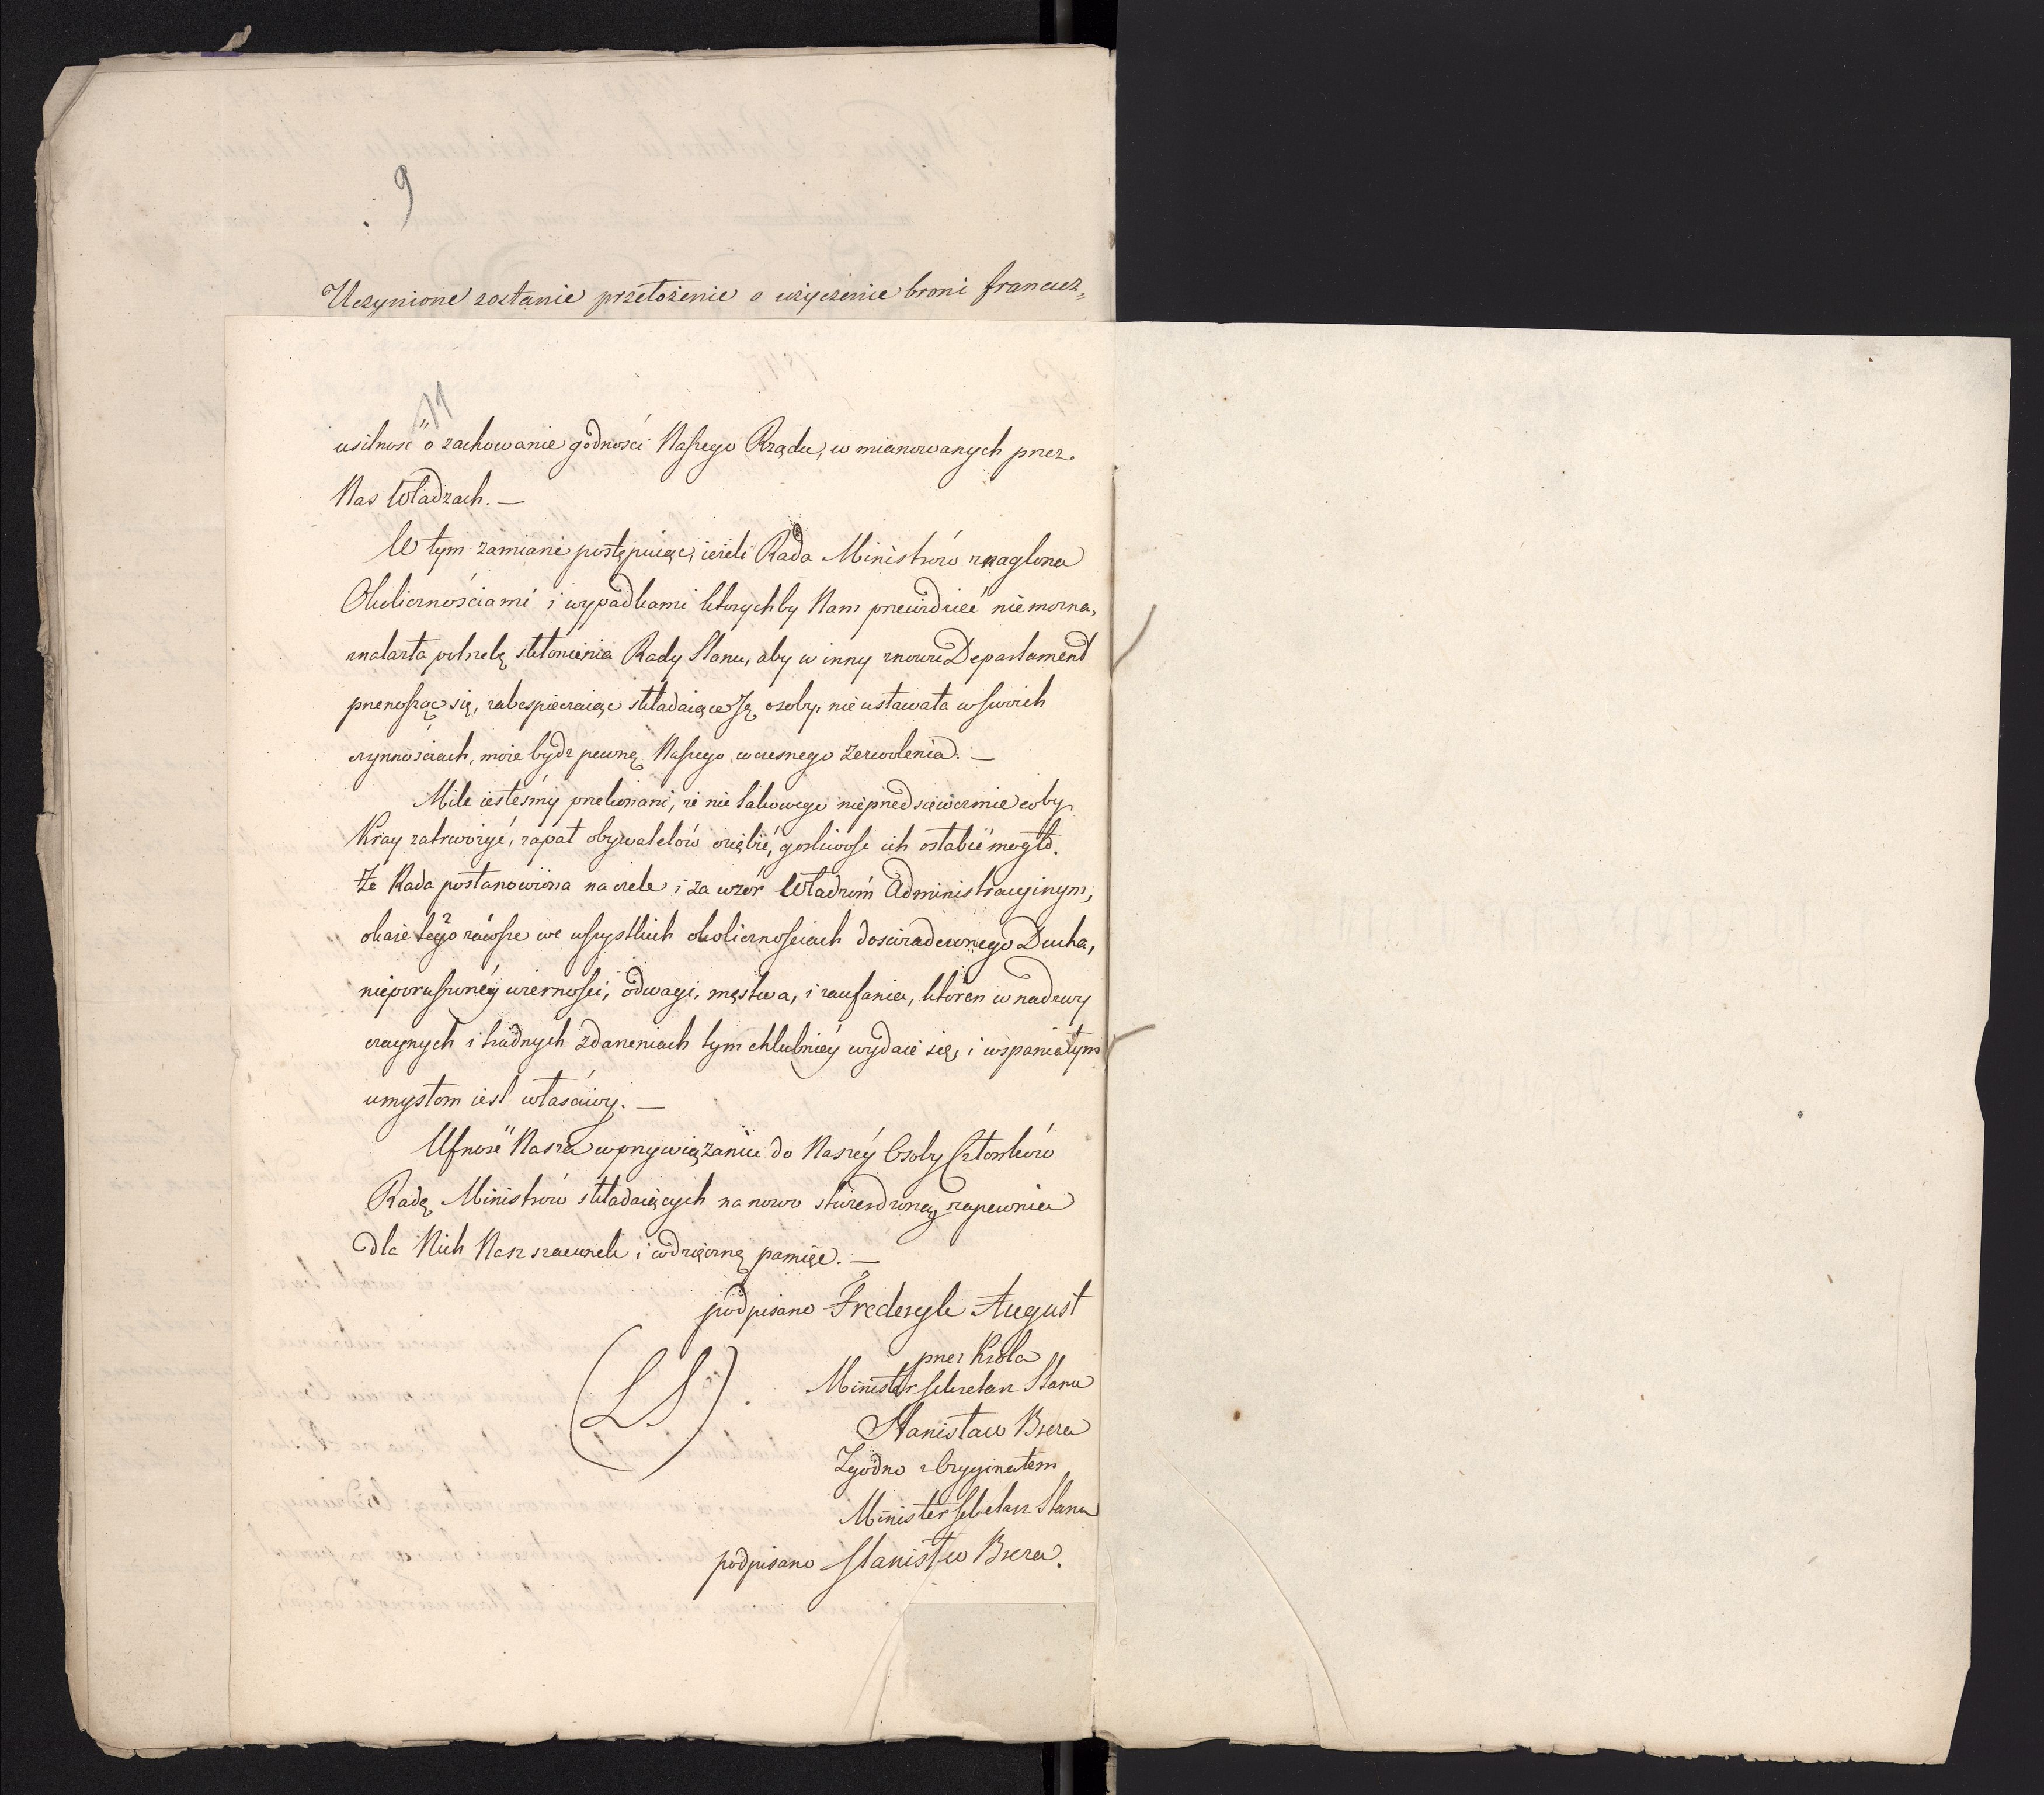 9
Uczynione zostanie przełożenie o użyczenie broni francuz„
11
usilność o zachowanie godności Naszego Rządu, w mianowanych przez
Nas Władzach. —
W tym zamiarze postępuiąc, ieżeli Rada Ministrów znaglona
Okolicznościami i wypadkami którychby Nam przewidzieć nie można,
znalazła potrzebę skłonienia Rady Stanu, aby w inny znowu Departament
przenosząc się, zabespieczaiąc składaiące Ją osoby, nie ustawała w swoich
czynnościach, może bydz pewną Naszego wczesnego Zezwolenia. —
Mile iesteśmy przekonani, że nic takowego nieprzedsięweźmie coby
Kray zatrwożyć, zapał obywatelów oziębić, gorliwość ich osłabić mogło.
Że Rada postanowiona na czele i za wzór Władzom Administracyinym,
okaże tego zawsze we wszystkich okolicznościach doświadczonego Ducha,
nieporuszonéy wierności, odwagi, męstwa, i zaufania, któren w nadzwy
czaynych i trudnych zdarzeniach tym chlubniéy wydaie się, i wspaniałym
umysłom iest właściwy. —
Ufność Nasza w przywiązaniu do Naszéy Osoby Członków
Radę Ministrów składaiących na nowo stwierdzona, zapewnia
dla Nich Nasz szacunek i wdzięczną pamięć. —
podpisano Frederyk August
przez Króla
Minister Sekretarz Stanu
(L.S.).
Stanisław Breza
Zgodno z Oryginałem
Minister Sekretarz Stanu
podpisano Stanisław Breza.